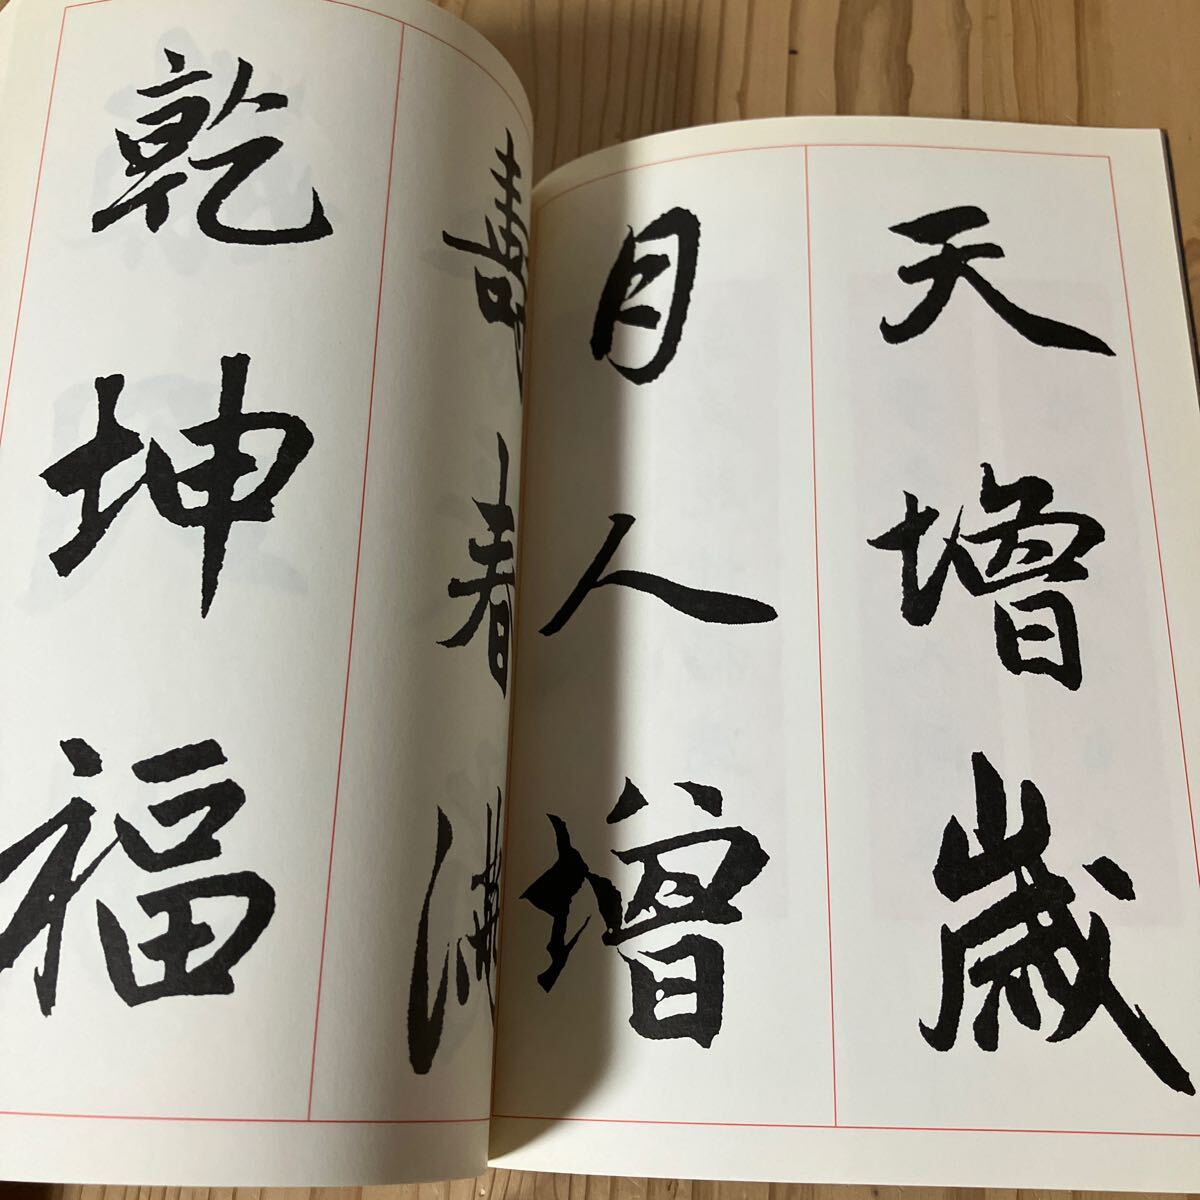 天增歲
月人增
壽春滿
乾坤福